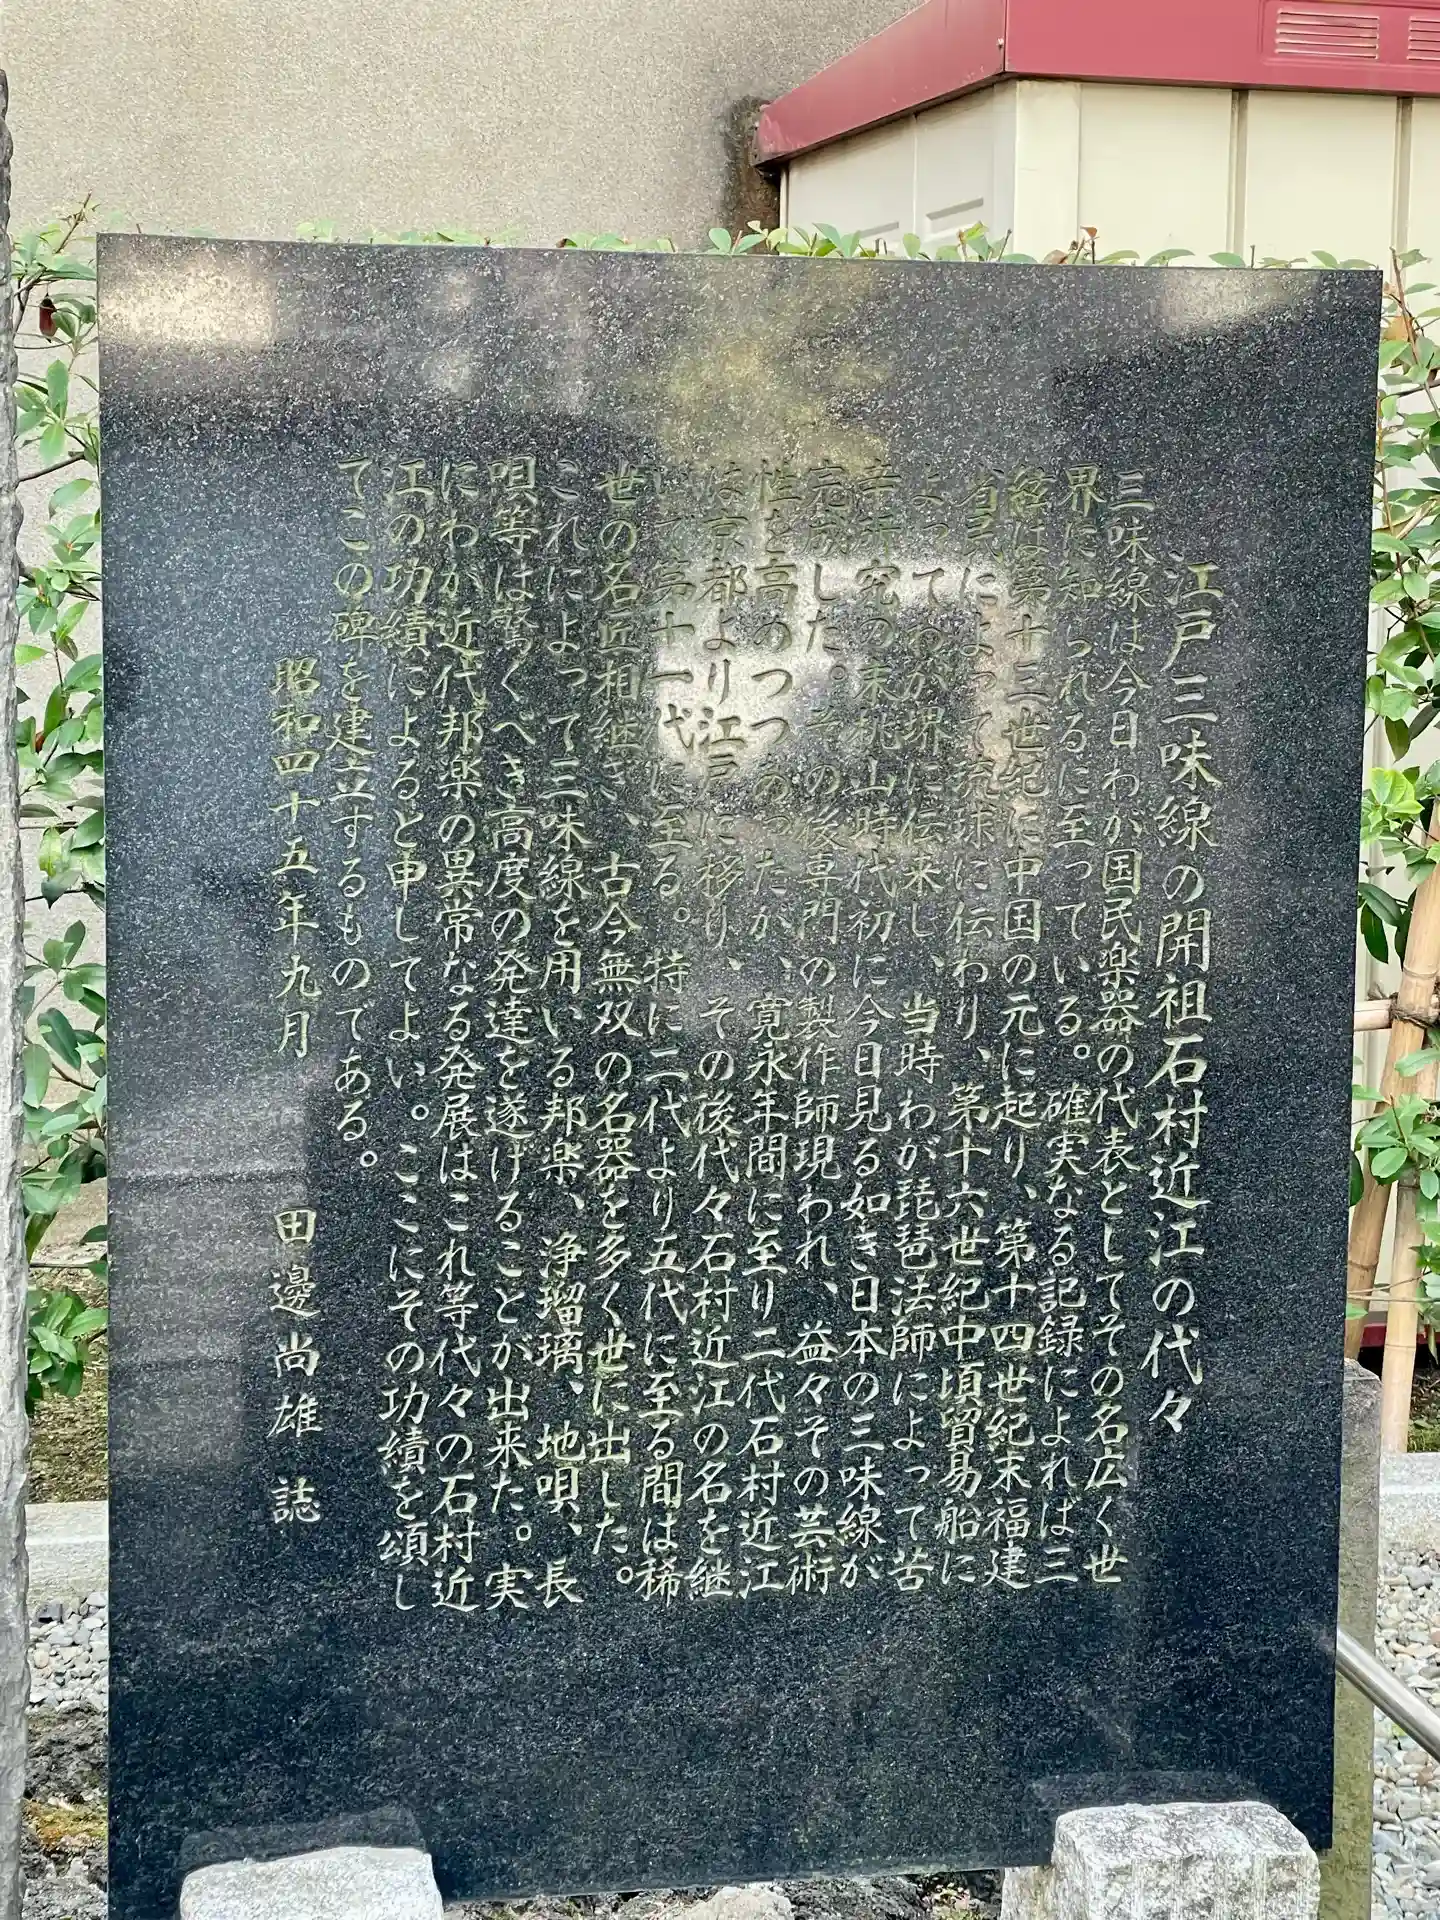 江戸三味線の開祖石村近江の代々
三味線は今日わが国民楽器の代表としてその名広く世
界に知られるに至っている。確実なる記録によれば三
絃は第十三世紀に中国の元に起り、第十四世紀末福建
省民によって琉球に伝わり、第十六世紀中頃貿易船に
よってわが堺に伝来し、当時わが琵琶法師によって苦
辛研究の末桃山時代初に今日見る如き日本の三味線が
完成した。その後専門の製作師現われ、益々その芸術
性を高めつつあったが、寛永年間に至り二代石村近江
は京都より江戸に移り、その後代々石村近江の名を継
いで第十一代に至る。特に二代より五代に至る間は稀
世の名匠相継ぎ、古今無双の名器を多く世に出した。
これによって三味線を用いる邦楽、浄瑠璃、地唄、長
唄等は驚くべき高度の発達を遂げることが出来た。実
にわが近代邦楽の異常なる発展はこれ等代々の石村近
江の功績によると申してよい。ここにその功績を頌し
てこの碑を建立するものである。
昭和四十五年九月 田邊尚雄 誌